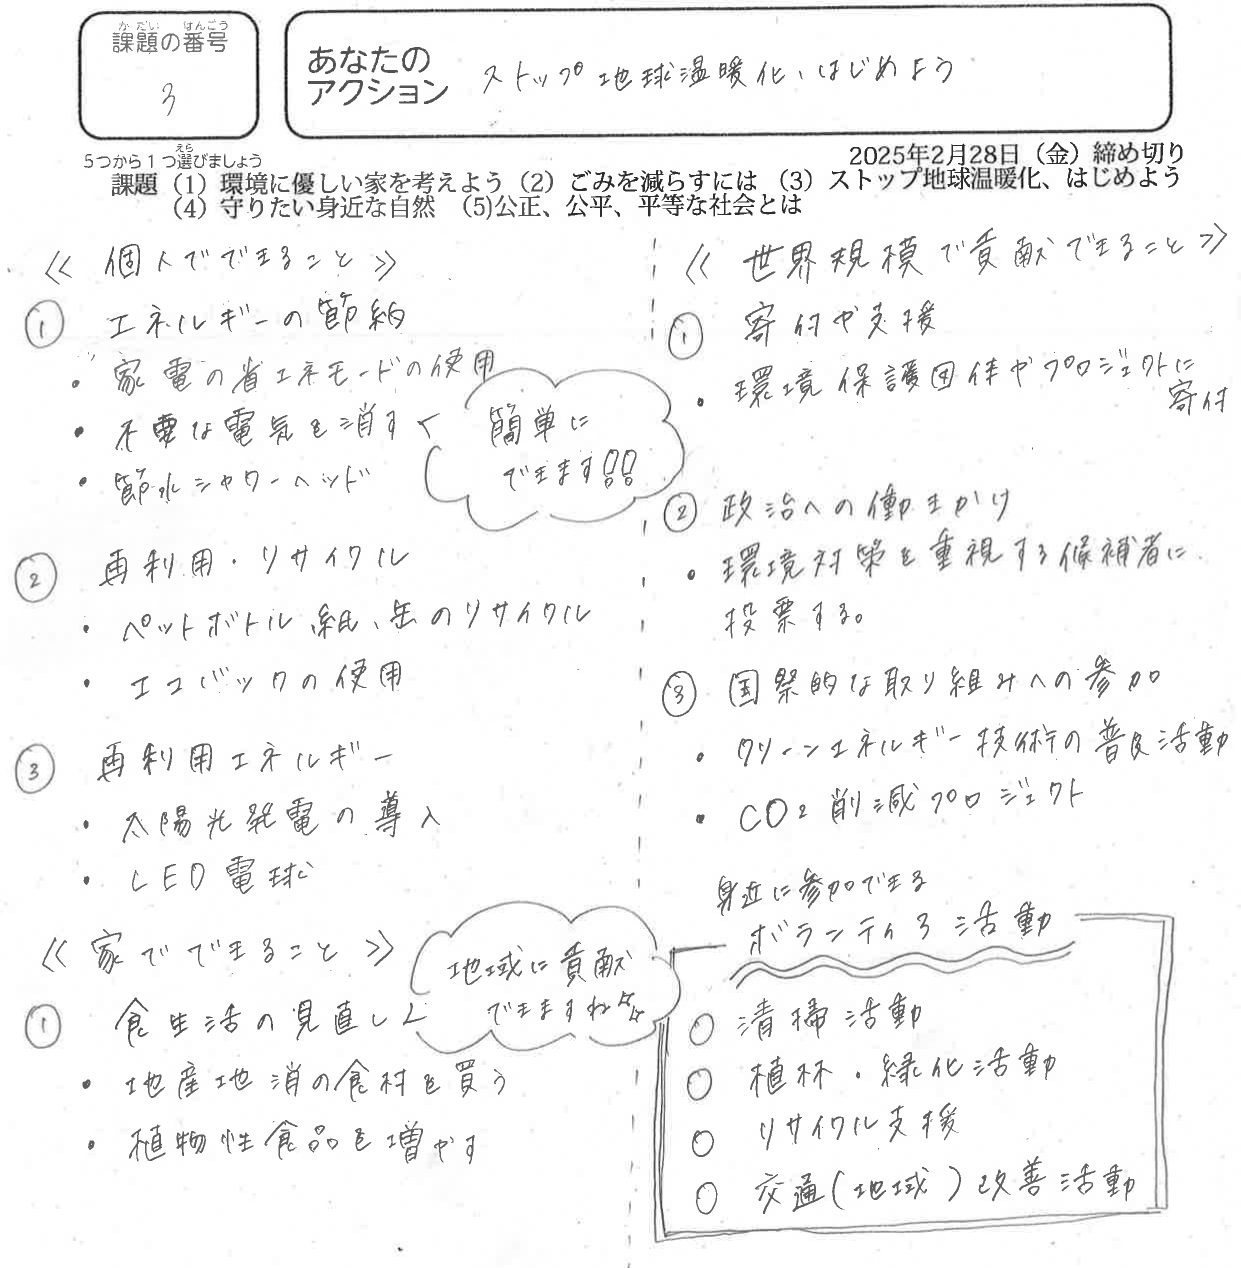 課題の番号
かだい ばんごう
3
あなたの
アクション
ストップ地球温暖化、はじめよう
5つから1つ選びましょう
えら
2025年2月28日（金）締め切り
課題（1）環境に優しい家を考えよう（2）ごみを減らすには（3）ストップ地球温暖化、はじめよう
（4）守りたい身近な自然　(5)公正、公平、平等な社会とは
≪ 個人でできること ≫
① エネルギーの節約
・家電の省エネモードの使用
・不要な電気を消す
・節水シャワーヘッド
簡単に
できます!!
② 再利用・リサイクル
・ペットボトル、紙、缶のリサイクル
・エコバックの使用
③ 再利用エネルギー
・太陽光発電の導入
・LED電球
≪ 家でできること ≫
① 食生活の見直し
・地産地消の食材を買う
・植物性食品を増やす
地域に貢献
できますね
≪ 世界規模で貢献できること ≫
① 寄付や支援
・環境保護団体やプロジェクトに
寄付
② 政治への働きかけ
・環境対策を重視する候補者に
投票する。
③ 国祭的な取り組みへの参加
・クリーンエネルギー技術の普及活動
・CO2削減プロジェクト
身近に参加できる
ボランティア活動
○ 清掃活動
○ 植林・緑化活動
○ リサイクル支援
○ 交通(地域)改善活動